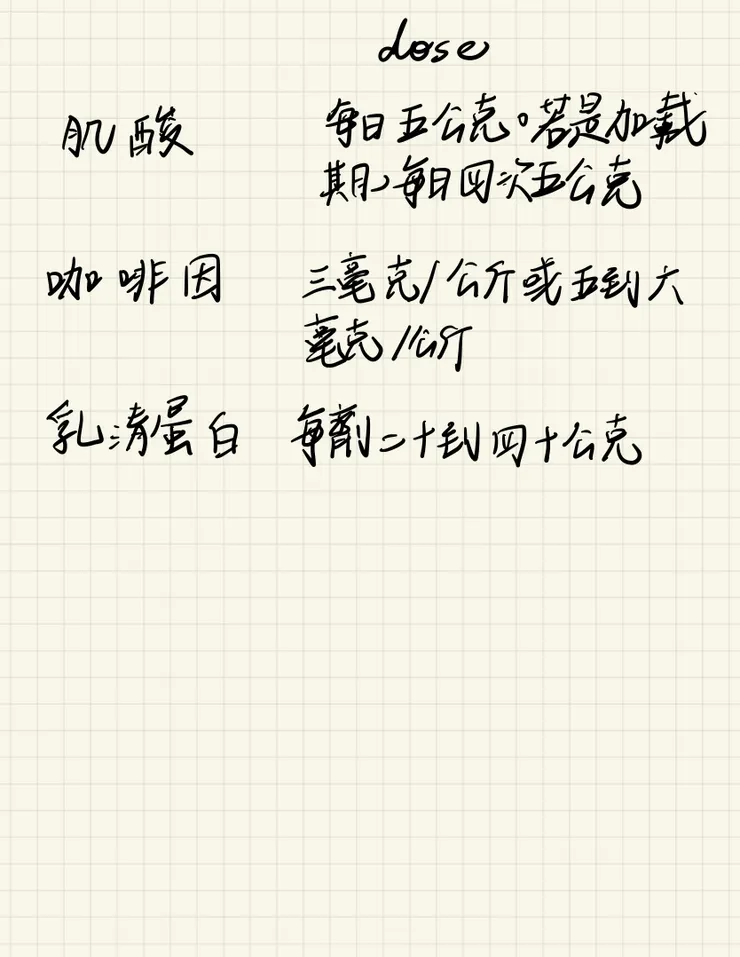 dose
肌酸 每日五公克。若是加載
期,每日四次五公克
咖啡因 三毫克/公斤或五到六
毫克/公斤
乳清蛋白 每劑二十到四十公克